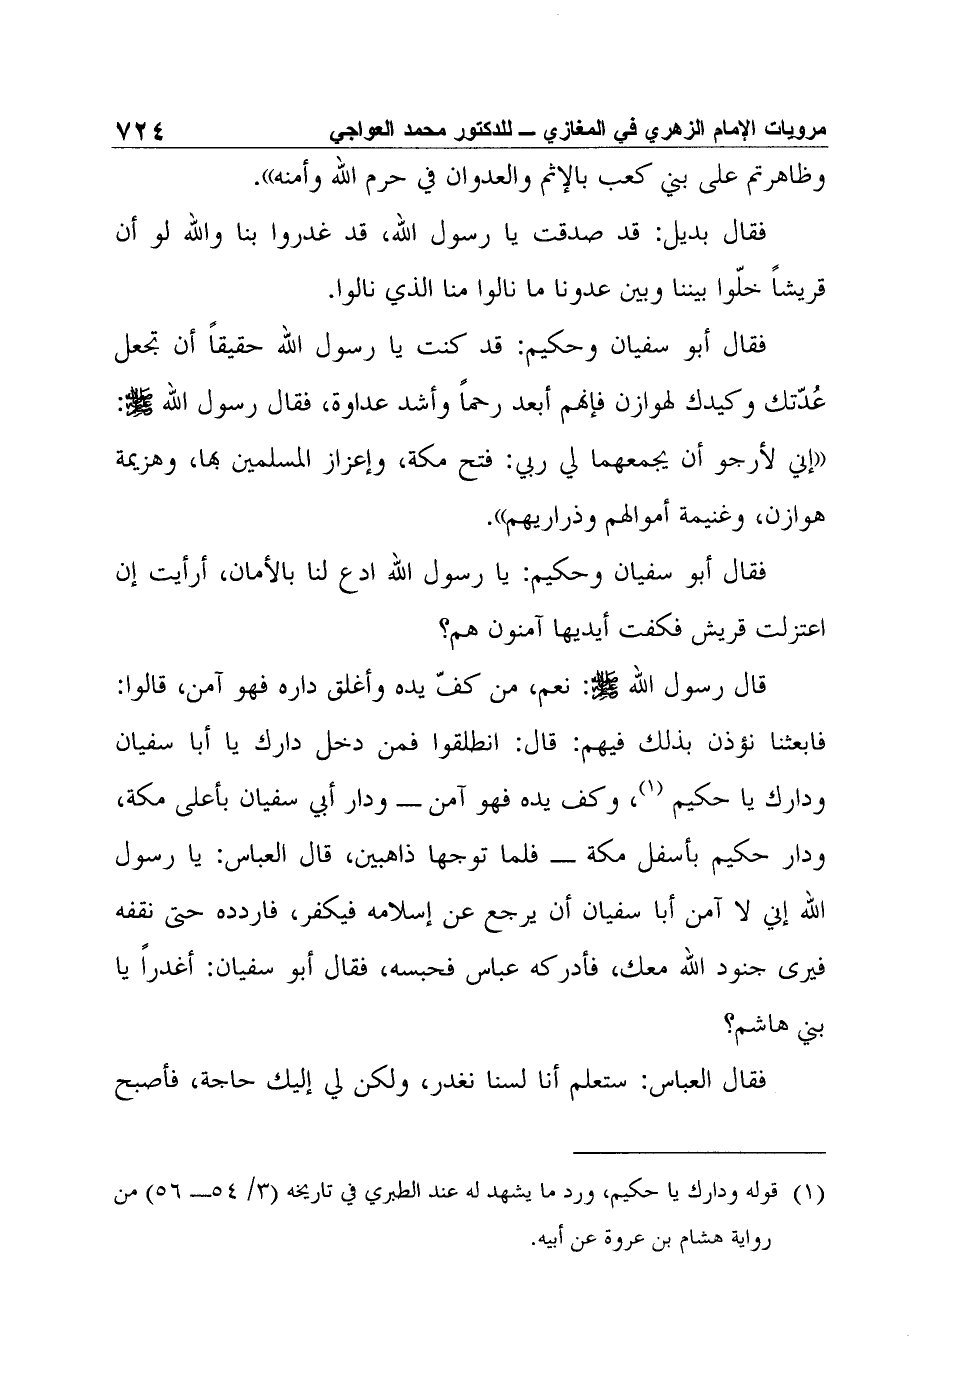 مرويات الإمام الزهري في المغازي ــ للدكتور محمد العواجي ٧٢٤
وظاهرتم على بني كعب بالإثم والعدوان في حرم الله وأمنه)).
فقال بديل: قد صدقت يا رسول الله، قد غدروا بنا والله لو أن
قريشاً خلّوا بيننا وبين عدونا ما نالوا منا الذي نالوا.
فقال أبو سفيان وحكيم: قد كنت يا رسول الله حقيقاً أن تجعل
عُدّتك وكيدك لهوازن فإنهم أبعد رحماً وأشد عداوة، فقال رسول الله ﷺ:
((إني لأرجو أن يجمعهما لي ربي: فتح مكة، وإعزاز المسلمين بها، وهزيمة
هوازن، وغنيمة أموالهم وذراريهم)).
فقال أبو سفيان وحكيم: يا رسول الله ادع لنا بالأمان، أرأيت إن
اعتزلت قريش فكفت أيديها آمنون هم؟
قال رسول الله ﷺ: نعم، من كفّ يده وأغلق داره فهو آمن، قالوا:
فابعثنا نؤذن بذلك فيهم: قال: انطلقوا فمن دخل دارك يا أبا سفيان
ودارك يا حكيم (١)، وكف يده فهو آمن ــ ودار أبي سفيان بأعلى مكة،
ودار حكيم بأسفل مكة ــ فلما توجها ذاهبين، قال العباس: يا رسول
الله إني لا آمن أبا سفيان أن يرجع عن إسلامه فيكفر، فاردده حتى نقفه
فيرى جنود الله معك، فأدركه عباس فحبسه، فقال أبو سفيان: أغدراً يا
بني هاشم؟
فقال العباس: ستعلم أنا لسنا نغدر، ولكن لي إليك حاجة، فأصبح
(١) قوله ودارك يا حكيم، ورد ما يشهد له عند الطبري في تاريخه (٣/ ٥٤ــ ٥٦) من
رواية هشام بن عروة عن أبيه.